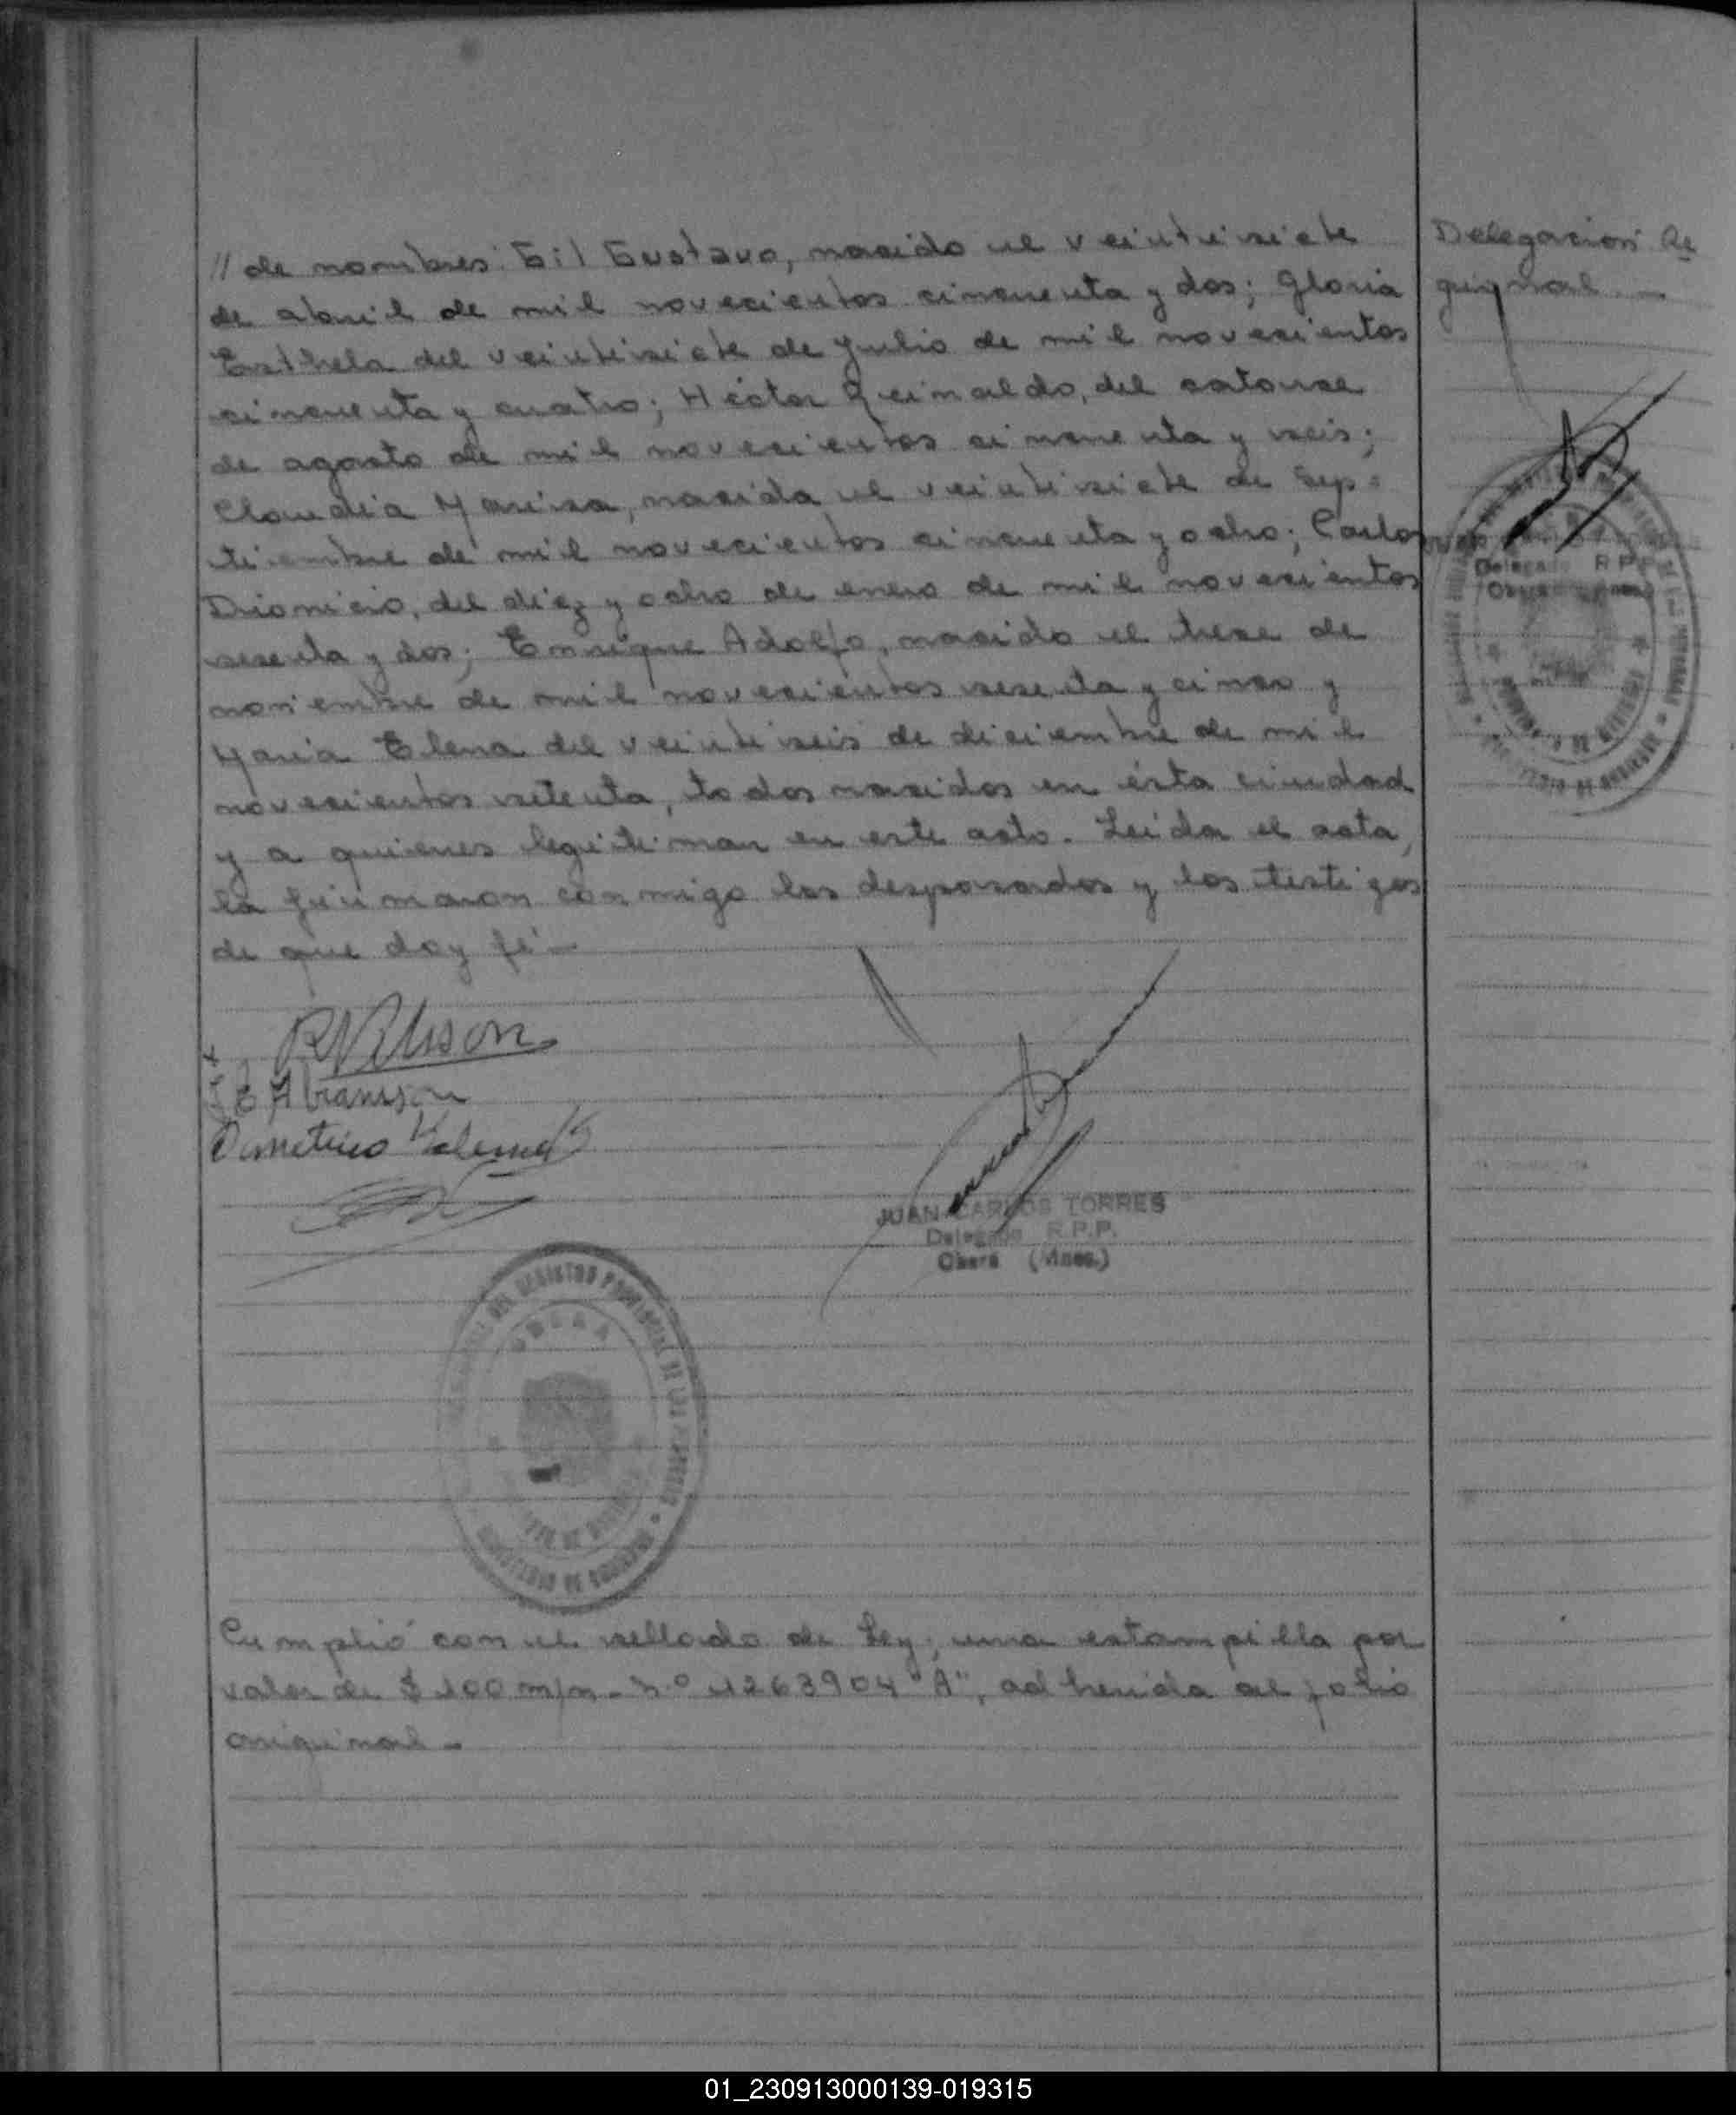 // de nombres: Gil Gustavo, nacido el veintisiete
de abril de mil novecientos cincuenta y dos; Gloria
Esthela del veintisiete de julio de mil novecientos
cincuenta y cuatro; Héctor Reinaldo, del catorce
de agosto de mil novecientos cincuenta y seis;
Claudia Marisa, nacida el veintisiete de Sep-
tiembre de mil novecientos cincuenta y ocho; Carlos
Dionicio, del diez y ocho de enero de mil novecientos
sesenta y dos; Enrique Adolfo, nacido el trece de
noviembre de mil novecientos sesenta y cinco y
María Elena del veintiseis de diciembre de mil
novecientos setenta, todos nacidos en ésta ciudad
y a quienes legitiman en este acto. Leida el acta,
la firmaron conmigo los desposados y los testigos
de que doy fé.-
Delegación Re
gional.-
Delegado R.P.P.
R Nilsson
E Abramson
Demetrio
JUAN CARLOS TORRES
Delegado R.P.P.
Oberá (Mnes.)
DEL REGISTRO PROVINCIAL DE LAS PERSONAS
OBERA
MINISTERIO DE GOBIERNO
Cumplió con el sellado de Ley, una estampilla por
valor de $ 100 m/n - N.º 4263904 "A", adherida al folio
original.-
01_230913000139-019315